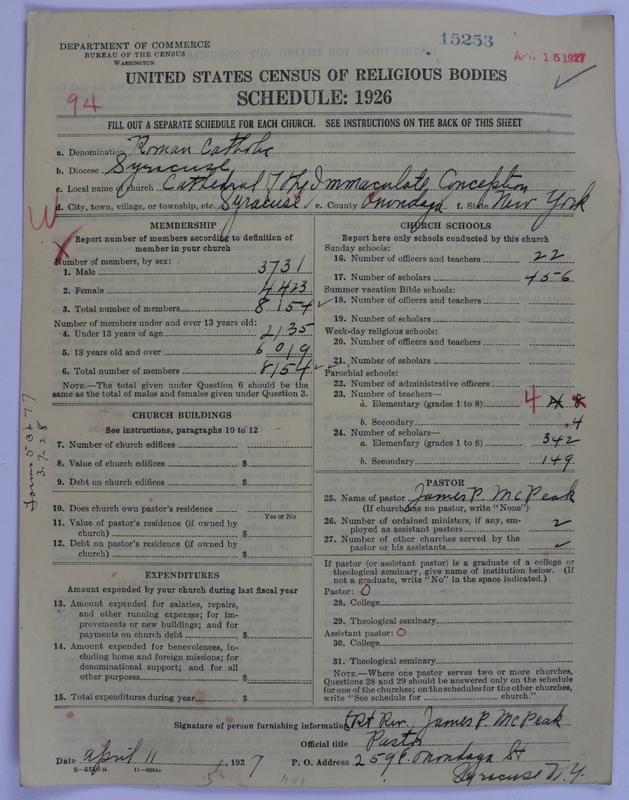 DEPARTMENT OF COMMERCE
BUREAU OF THE CENSUS
WASHINGTON
15253
APR 15 1927
94
UNITED STATES CENSUS OF RELIGIOUS BODIES
SCHEDULE: 1926
FILL OUT A SEPARATE SCHEDULE FOR EACH CHURCH. SEE INSTRUCTIONS ON THE BACK OF THIS SHEET
a. Denomination Roman Catholic
b. Diocese Syracuse
c. Local name of church Cathedral of the Immaculate Conception
d. City, town, village, or township, etc. Syracuse e. County Onondaga f. State New York
W
X
MEMBERSHIP
Report number of members according to definition of member in your church
Number of members, by sex:
1. Male 3731
2. Female 4423
3. Total number of members 8154
Number of members under and over 13 years old:
4. Under 13 years of age 2135
5. 13 years old and over 6019
6. Total number of members 8154
NOTE.—The total given under Question 6 should be the same as the total of males and females given under Question 3.
CHURCH BUILDINGS
See instructions, paragraphs 10 to 12
7. Number of church edifices
8. Value of church edifices $
9. Debt on church edifices $
10. Does church own pastor's residence
Yes or No
11. Value of pastor's residence (if owned by church) $
12. Debt on pastor's residence (if owned by church) $
EXPENDITURES
Amount expended by your church during last fiscal year
13. Amount expended for salaries, repairs, and other running expenses; for improvements or new buildings; and for payments on church debt $
14. Amount expended for benevolences, including home and foreign missions; for denominational support; and for all other purposes $
15. Total expenditures during year $
CHURCH SCHOOLS
Report here only schools conducted by this church
Sunday schools:
16. Number of officers and teachers 22
17. Number of scholars 456
Summer vacation Bible schools:
18. Number of officers and teachers
19. Number of scholars
Week-day religious schools:
20. Number of officers and teachers
21. Number of scholars
Parochial schools:
22. Number of administrative officers
23. Number of teachers—
a. Elementary (grades 1 to 8) 4 8
b. Secondary 4
24. Number of scholars—
a. Elementary (grades 1 to 8) 342
b. Secondary 149
PASTOR
25. Name of pastor James P. McPeak
(If church has no pastor, write "None")
26. Number of ordained ministers, if any, employed as assistant pastors 2
27. Number of other churches served by the pastor or his assistants
If pastor (or assistant pastor) is a graduate of a college or theological seminary, give name of institution below. (If not a graduate, write "No" in the space indicated.)
Pastor: 0
28. College
29. Theological seminary
Assistant pastor: 0
30. College
31. Theological seminary
NOTE.—Where one pastor serves two or more churches, Questions 28 and 29 should be answered only on the schedule for one of the churches; on the schedules for the other churches, write "See schedule for church."
Signature of person furnishing information (Rt Rev. James P. McPeak
Official title Pastor
Date April 11, 1927 P. O. Address 259 E. Onondaga St
Syracuse N.Y.